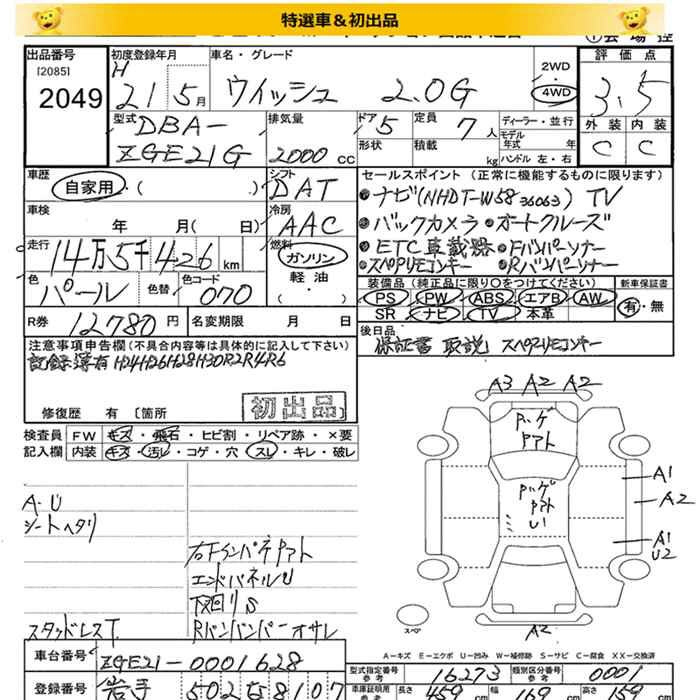 特選車&初出品
出品番号
[2085]
2049
初度登録年月
H
21 5月
車名・グレード
ウィッシュ 2.0G
2WD
4WD
評価点
3.5
外装 内装
C C
型式
DBA-
ZGE21G
排気量
2000 CC
ドア
5
形状
定員
7人
積載
kg
ディーラー・並行
モデル
年式 年
ハンドル 左・右
車歴
自家用・( )
シフト
DAT
車検
年 月( 日)
冷房
AAC
走行
14万5千426km
燃料
ガソリン
軽油
・
( )
色
パール
色替
色コード
070
R券
12780円
名変期限 月 日
セールスポイント (正常に機能するものに限ります)
ナビ(NHDT-W58 36063) TV
バックカメラ オートクルーズ
ETC車載器 Fバンパーソナー
スペアリモコンキー Rバンパーソナー
装備品(純正品に限り○をつけてください)
PS PW ABS エアB AW
SR ナビ TV 本革
新車保証書
有・無
後日品
保証書 取説 スペアリモコンキー
注意事項申告欄(不具合内容等は具体的に記入して下さい)
記録簿有H24H26H28H30R2R4R6
修復歴 有 [箇所
初出品
検査員 FW キズ・飛石・ヒビ割・リペア跡・×要
記入欄 内装 キズ・汚レ・コゲ・穴・スレ・キレ・破レ
A・U
シートヘタリ
右Fインパネアト
エンドパネルU
下回りS
スタッドレスT
Rバンパーオサレ
A3 A2 A2
ハゲ
アト
ハゲ
アト
U1
A1
A2
A1
U2
A2
スペア
A−キズ E−エクボ U−凹み W−補修跡 S−サビ C−腐食 XX−交換済
車台番号
ZGE21-0001628
登録番号
岩手 502 58107
型式指定番号
参考
16273
類別区分番号
参考
0001
車庫証明用
参考
長さ
459
cm
幅
169
cm
高さ
159
cm